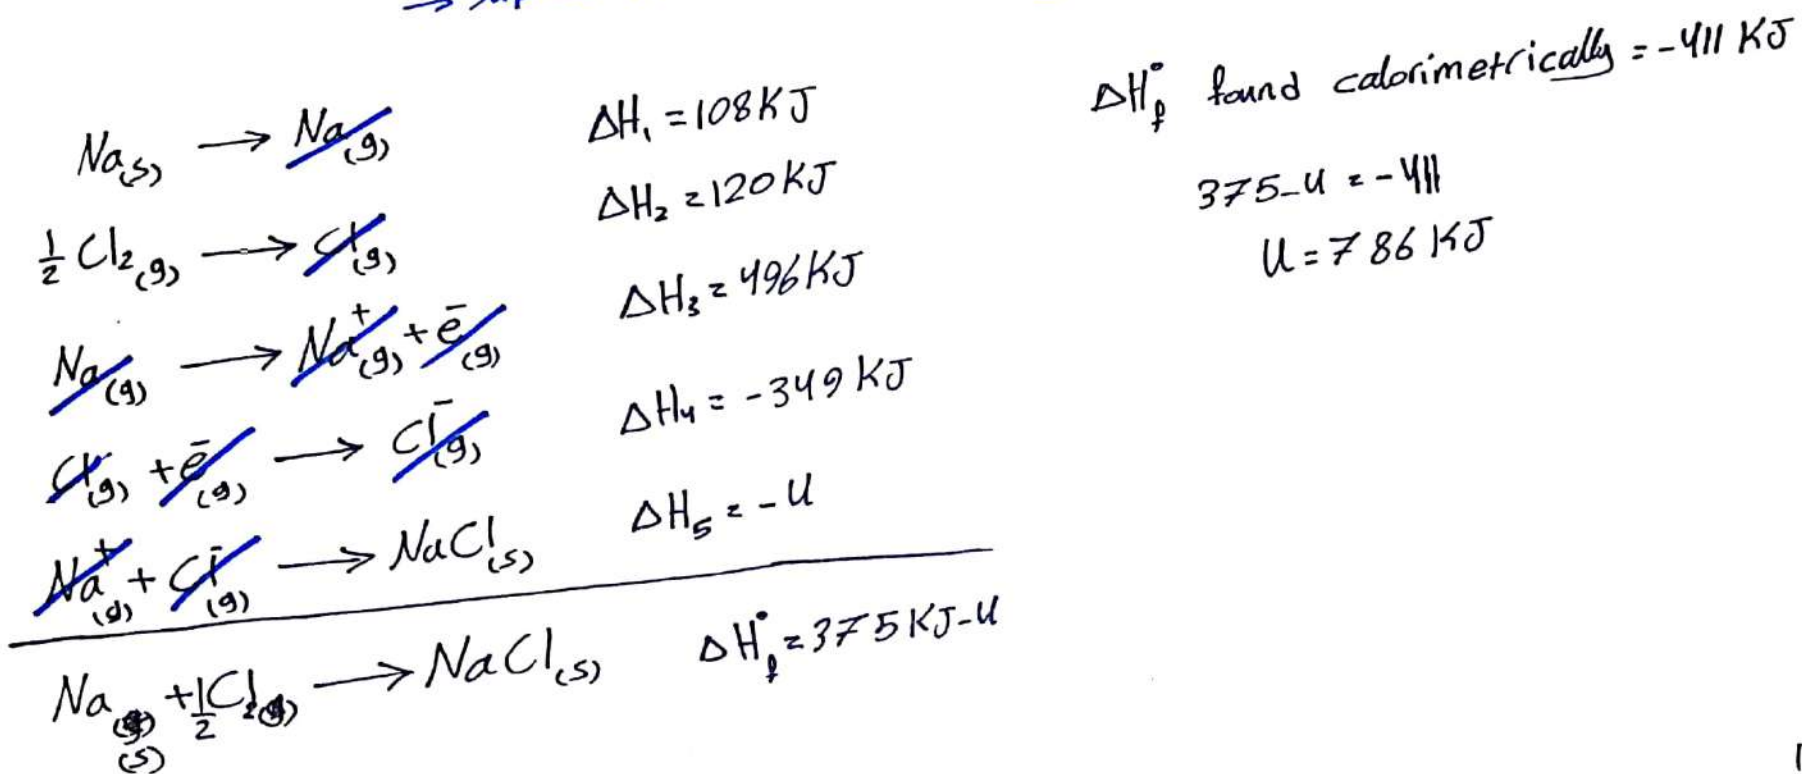 Na(s) → Na(g) ΔH₁ = 108KJ
½ Cl₂(g) → Cl(g) ΔH₂ = 120KJ
Na(g) → Na⁺(g) + e⁻(g) ΔH₃ = 496KJ
Cl(g) + e⁻(g) → Cl⁻(g) ΔH₄ = -349 KJ
Na⁺(g) + Cl⁻(g) → NaCl(s) ΔH₅ = -U
Na(s) + ½Cl₂(g) → NaCl(s) ΔH°f = 375KJ-U
ΔH°f found calorimetrically = -411 KJ
375-U = -411
U = 786 KJ